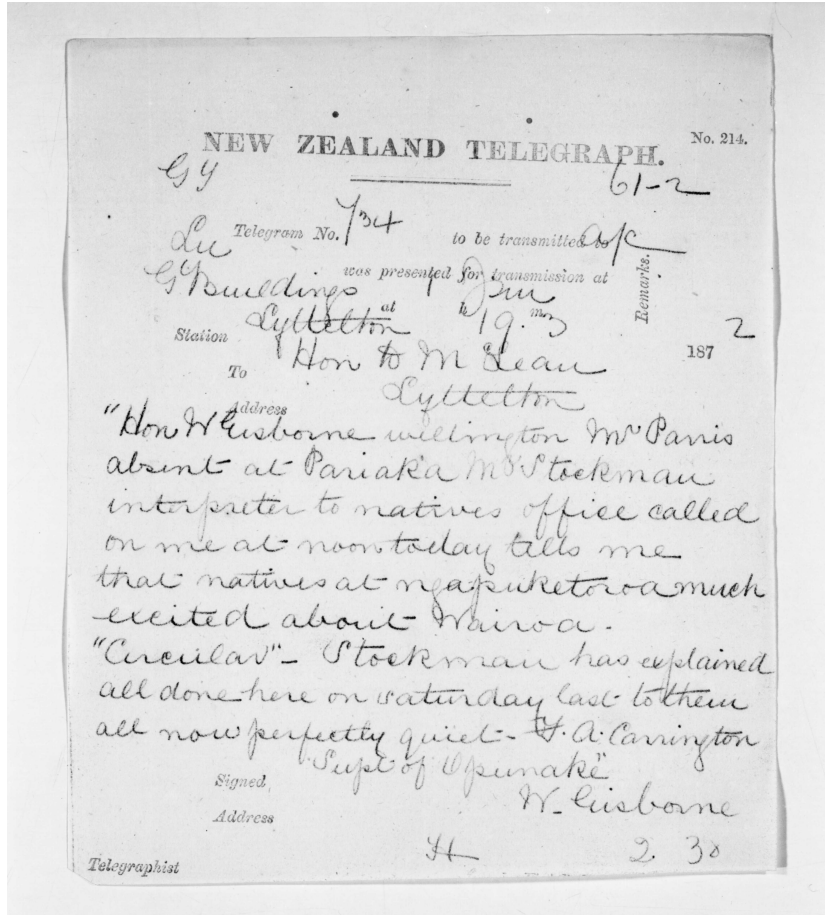 NEW ZEALAND TELEGRAPH.
No. 214.
GY
61-2
Telegram No. 734 to be transmitted to
Remarks.
was presented for transmission at
Gt Buildings
Lyttelton at h 19 m
Station
187 2
To Hon D McLean
Lyttelton
Address
"Hon W Gisborne wellington Mr Parris
absent at Pariaka Mr Stockman
interpreter to natives office called
on me at noon today tells me
that natives at ngapuketoroa much
excited about Wairoa.
"Circular" - Stockman has explained
all done here on saturday last to them
all now perfectly quiet - F. A. Carrington
Supt of Opunake"
Signed
W. Gisborne
Address
2. 30
Telegraphist